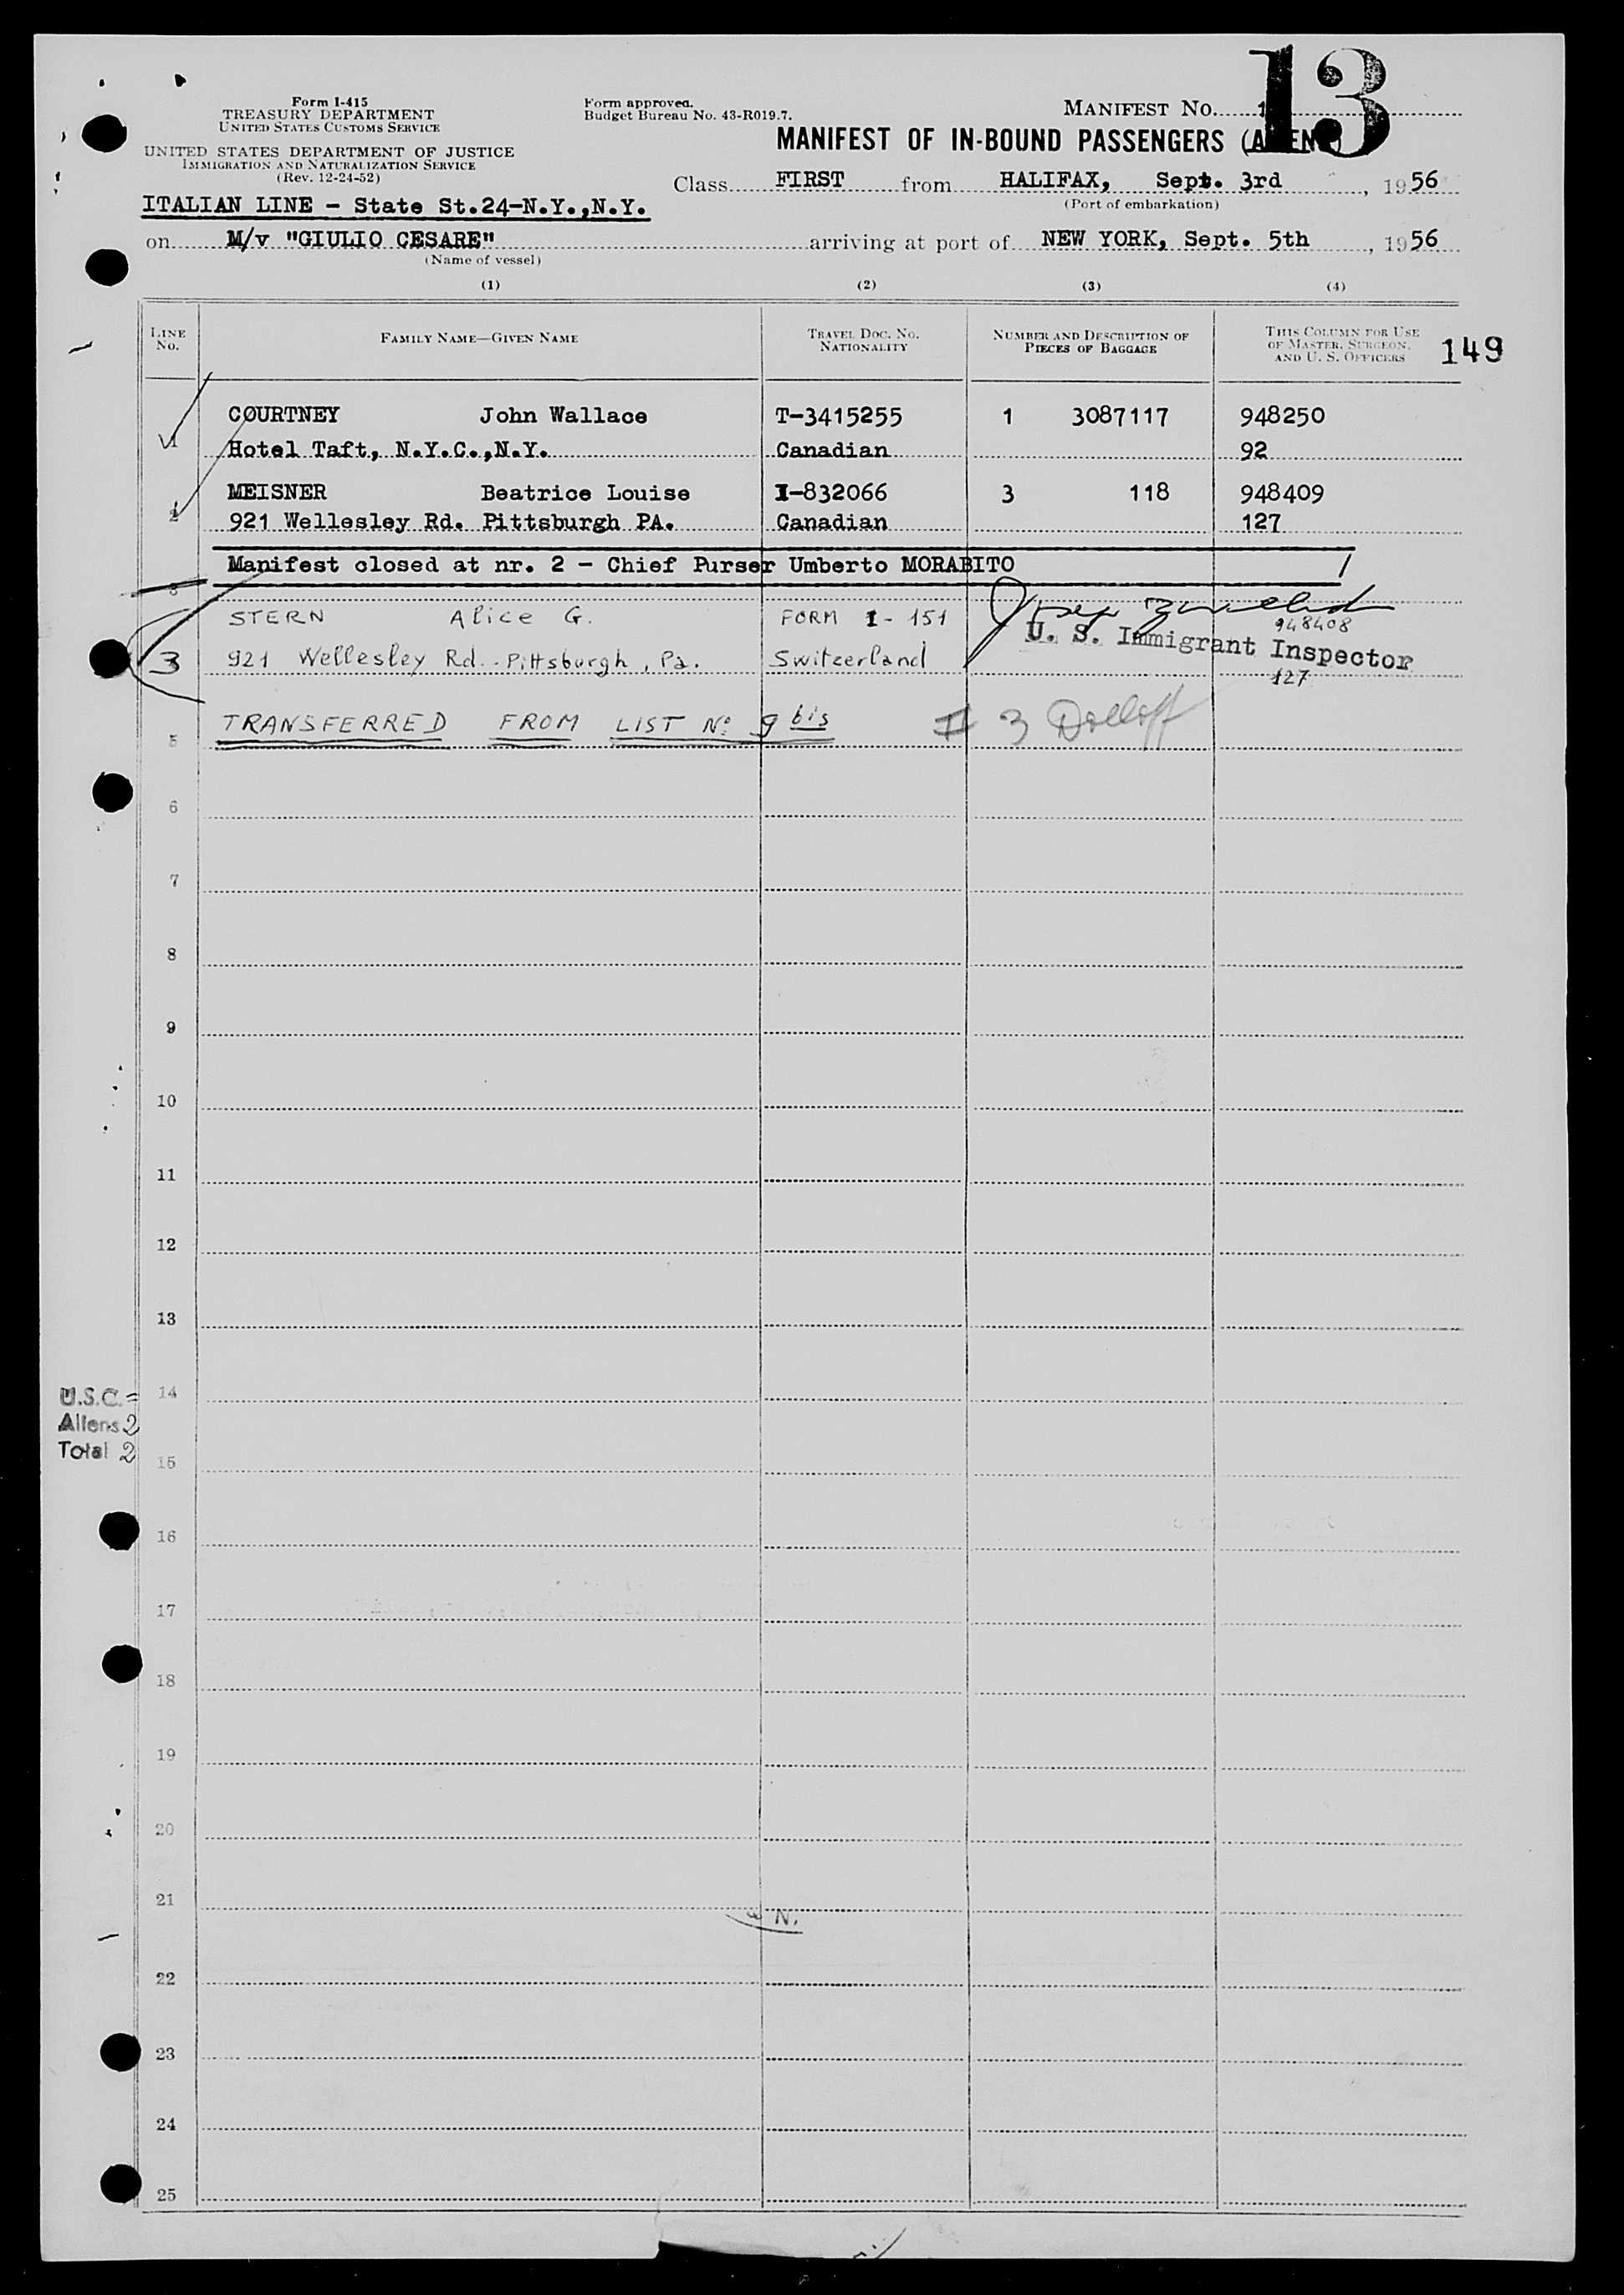 13
Form I-415
TREASURY DEPARTMENT
UNITED STATES CUSTOMS SERVICE
UNITED STATES DEPARTMENT OF JUSTICE
IMMIGRATION AND NATURALIZATION SERVICE
(Rev. 12-24-52)
Form approved.
Budget Bureau No. 43-R019.7.
MANIFEST NO.
MANIFEST OF IN-BOUND PASSENGERS
Class FIRST from HALIFAX, Sept. 3rd, 1956
(Port of embarkation)
ITALIAN LINE - State St.24-N.Y.,N.Y.
on M/v "GIULIO CESARE" arriving at port of NEW YORK, Sept. 5th, 1956
(Name of vessel)
(1) (2) (3) (4)
LINE NO. FAMILY NAME—GIVEN NAME TRAVEL DOC. NO. NATIONALITY NUMBER AND DESCRIPTION OF PIECES OF BAGGAGE THIS COLUMN FOR USE OF MASTER, SURGEON, AND U. S. OFFICERS
149
COURTNEY John Wallace T-3415255 1 3087117 948250
1 Hotel Taft, N.Y.C.,N.Y. Canadian 92
MEISNER Beatrice Louise I-832066 3 118 948409
2 921 Wellesley Rd. Pittsburgh PA. Canadian 127
Manifest closed at nr. 2 - Chief Purser Umberto MORABITO
STERN Alice G. FORM I-151 948408
U. S. Immigrant Inspector
3 921 Wellesley Rd. Pittsburgh, Pa. Switzerland 127
TRANSFERRED FROM LIST No 9 bis
5
6
7
8
9
10
11
12
13
U.S.C. - 14
Aliens 2
Total 2 15
16
17
18
19
20
21
N.
22
23
24
25